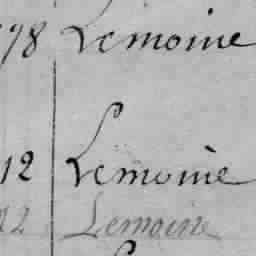 78 Lemoine
12 Lemoine
12 Lemoine